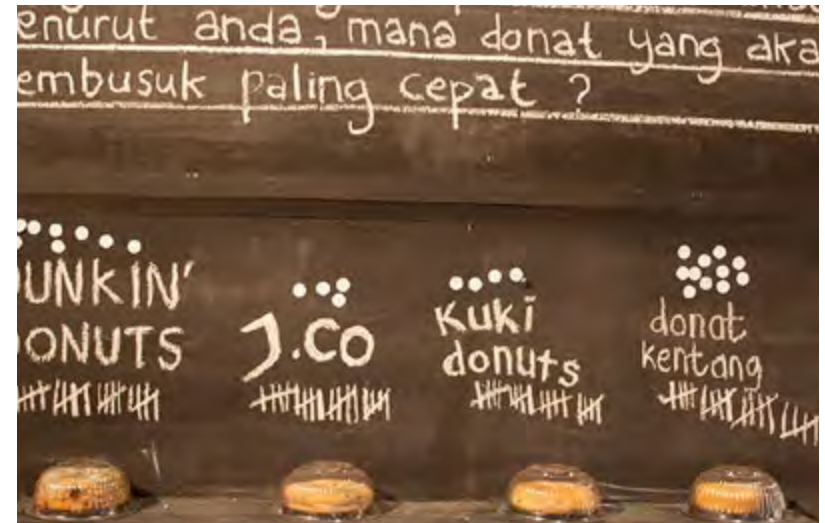 enurut anda, mana donat yang aka
embusuk paling cepat ?
UNKIN'
ONUTS
J.CO
KUKI
donuts
donat
kentang